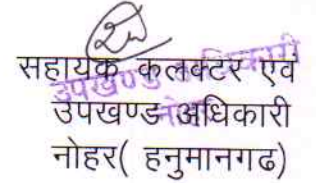 सहायक कलक्टर एवं
उपखण्ड अधिकारी
नोहर( हनुमानगढ)
उपखण्ड अधिकारी